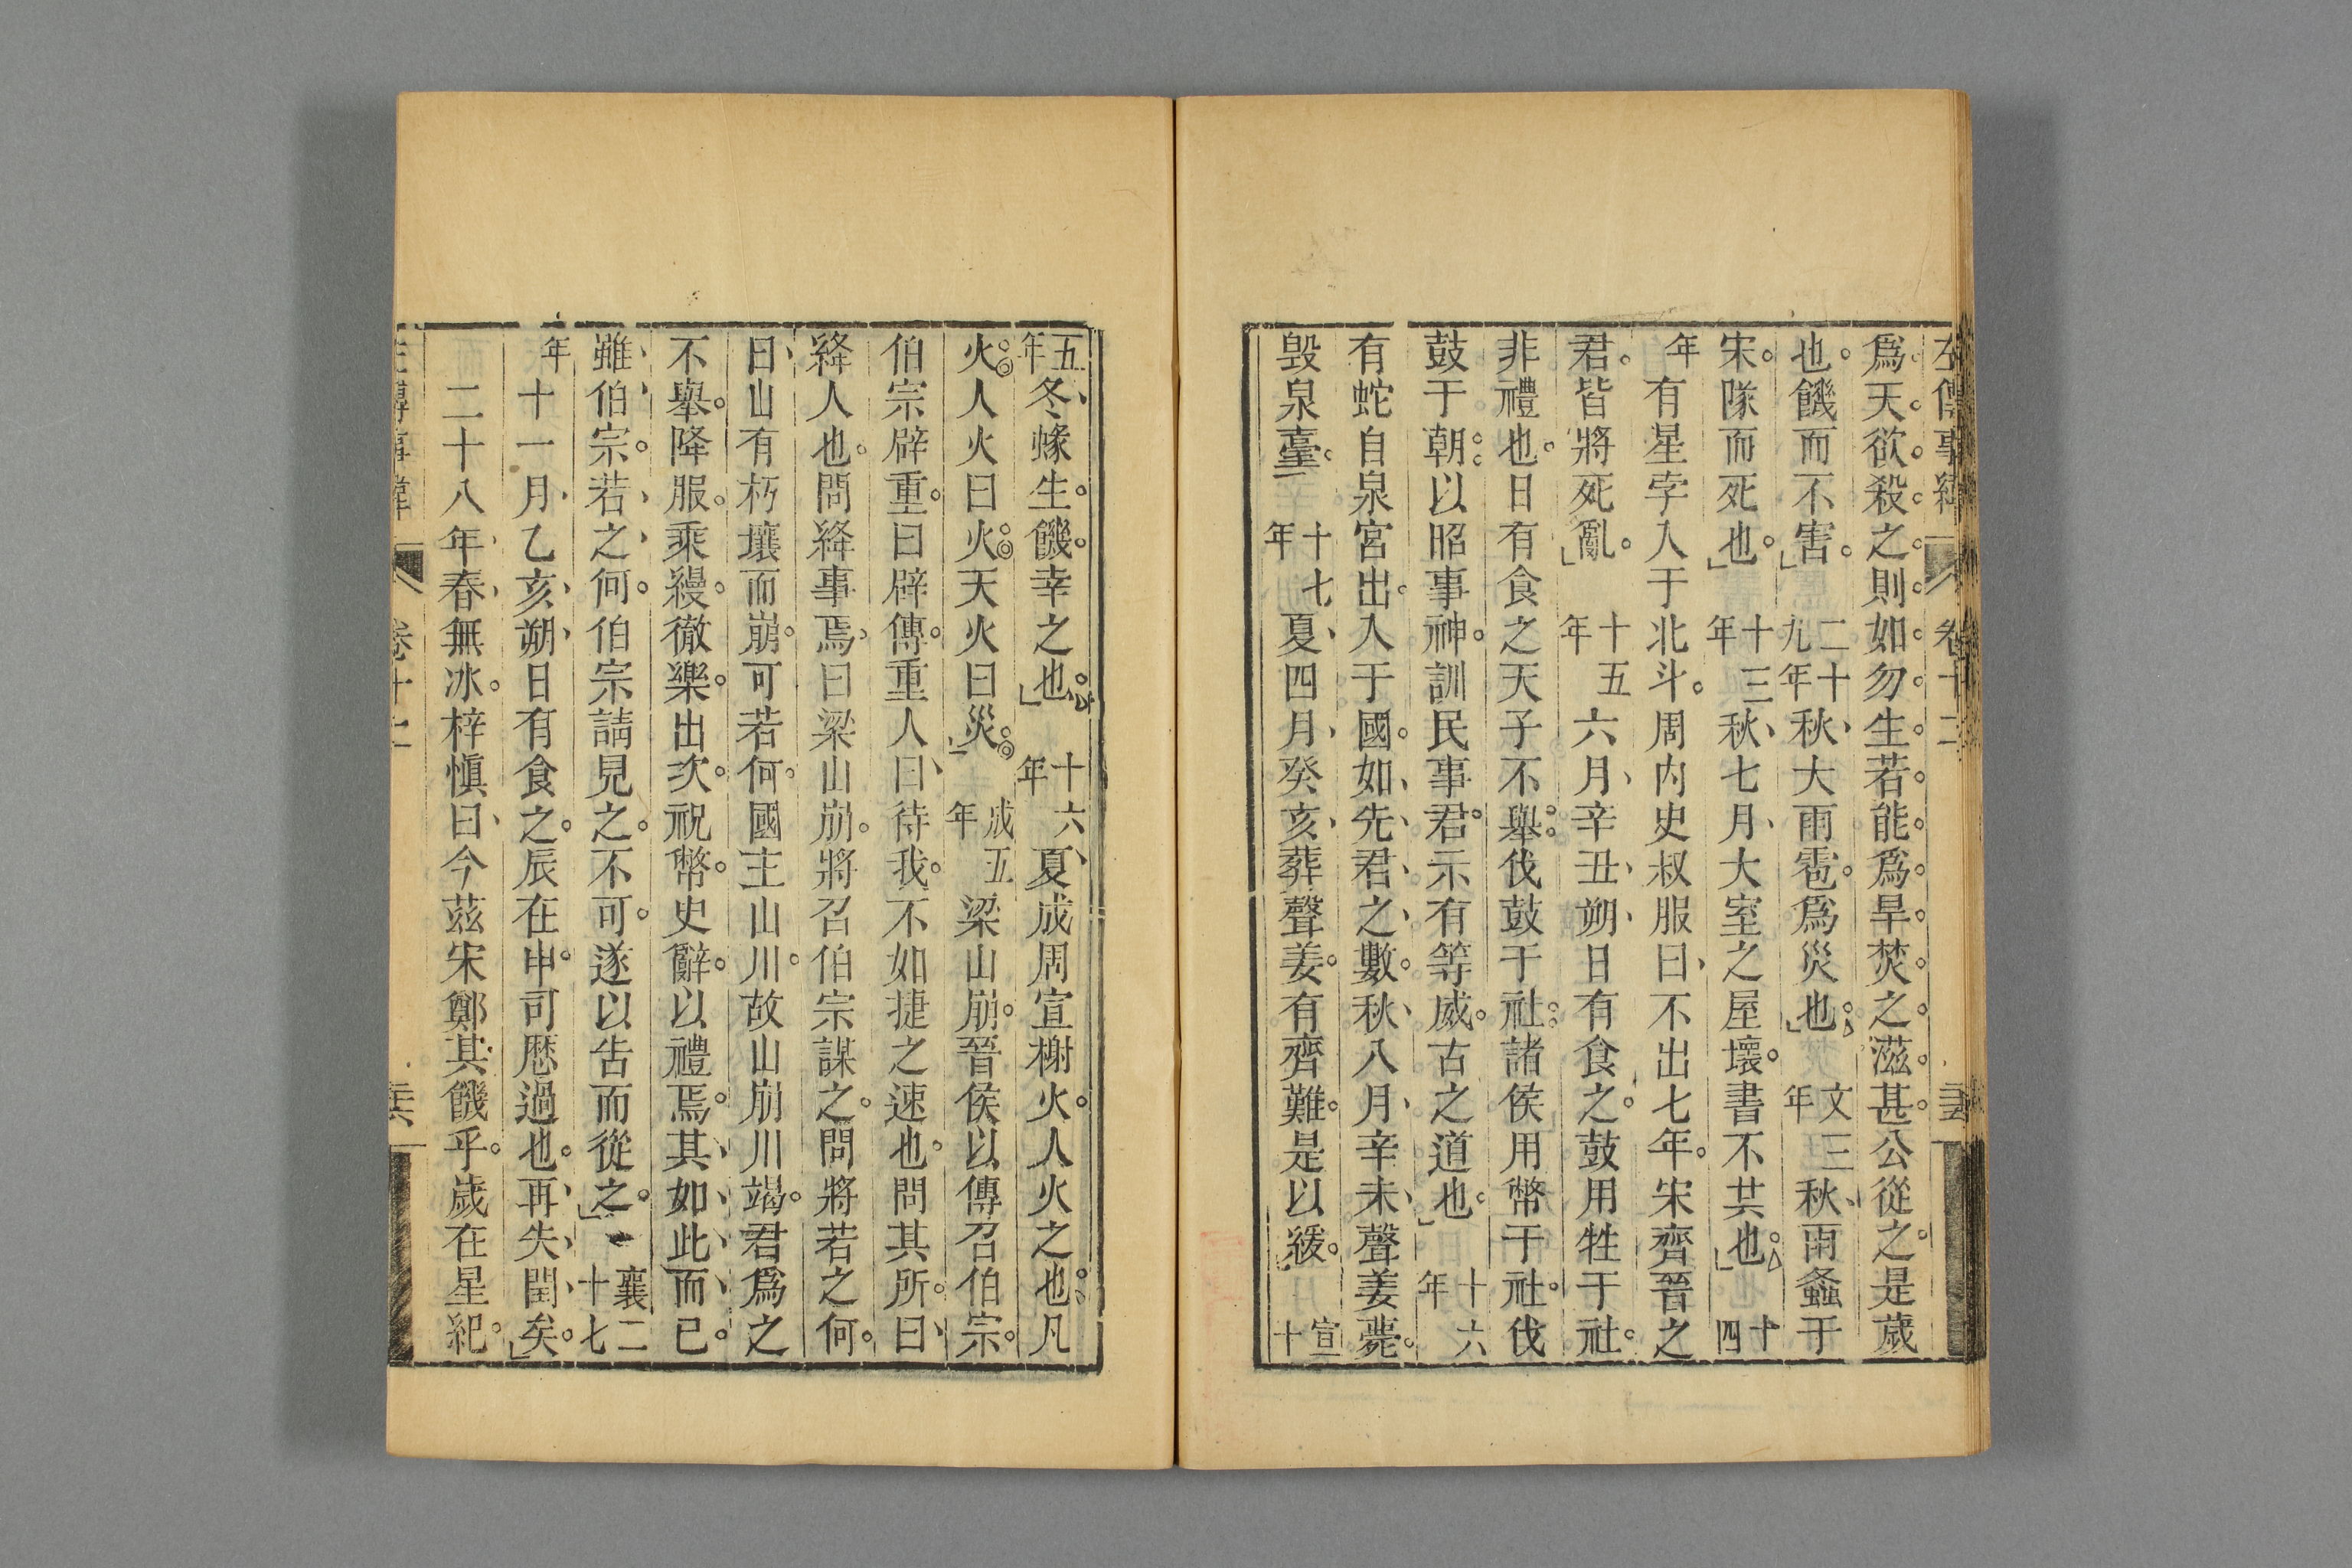 左傳事緯 卷十二 五
爲天欲殺之則如勿生若能爲旱焚之滋甚公從之是歲
也饑而不害二十九年秋大雨雹爲災也文三年秋雨螽于
宋隊而死也十三年秋七月大室之屋壞書不共也十四
年有星孛入于北斗周內史叔服曰不出七年宋齊晉之
君皆將死亂十五年六月辛丑朔日有食之鼓用牲于社
非禮也日有食之天子不舉伐鼓于社諸侯用幣于社伐
鼓于朝以昭事神訓民事君示有等威古之道也十六年
有蛇自泉宮出入于國如先君之數秋八月辛未聲姜薨
毀泉臺十七年夏四月癸亥葬聲姜有齊難是以緩宣十
五年冬蝝生饑幸之也十六年夏成周宣榭火人火之也凡
火人火曰火天火曰災成五年梁山崩晉侯以傳召伯宗
伯宗辟重曰辟傳重人曰待我不如捷之速也問其所曰
絳人也問絳事焉曰梁山崩將召伯宗謀之問將若之何
曰山有朽壤而崩可若何國主山川故山崩川竭君爲之
不舉降服乘縵徹樂出次祝幣史辭以禮焉其如此而已
雖伯宗若之何伯宗請見之不可遂以告而從之襄二十七
年十一月乙亥朔日有食之辰在申司歷過也再失閏矣
二十八年春無冰梓愼曰今茲宋鄭其饑乎歲在星紀
左傳事緯 卷十二